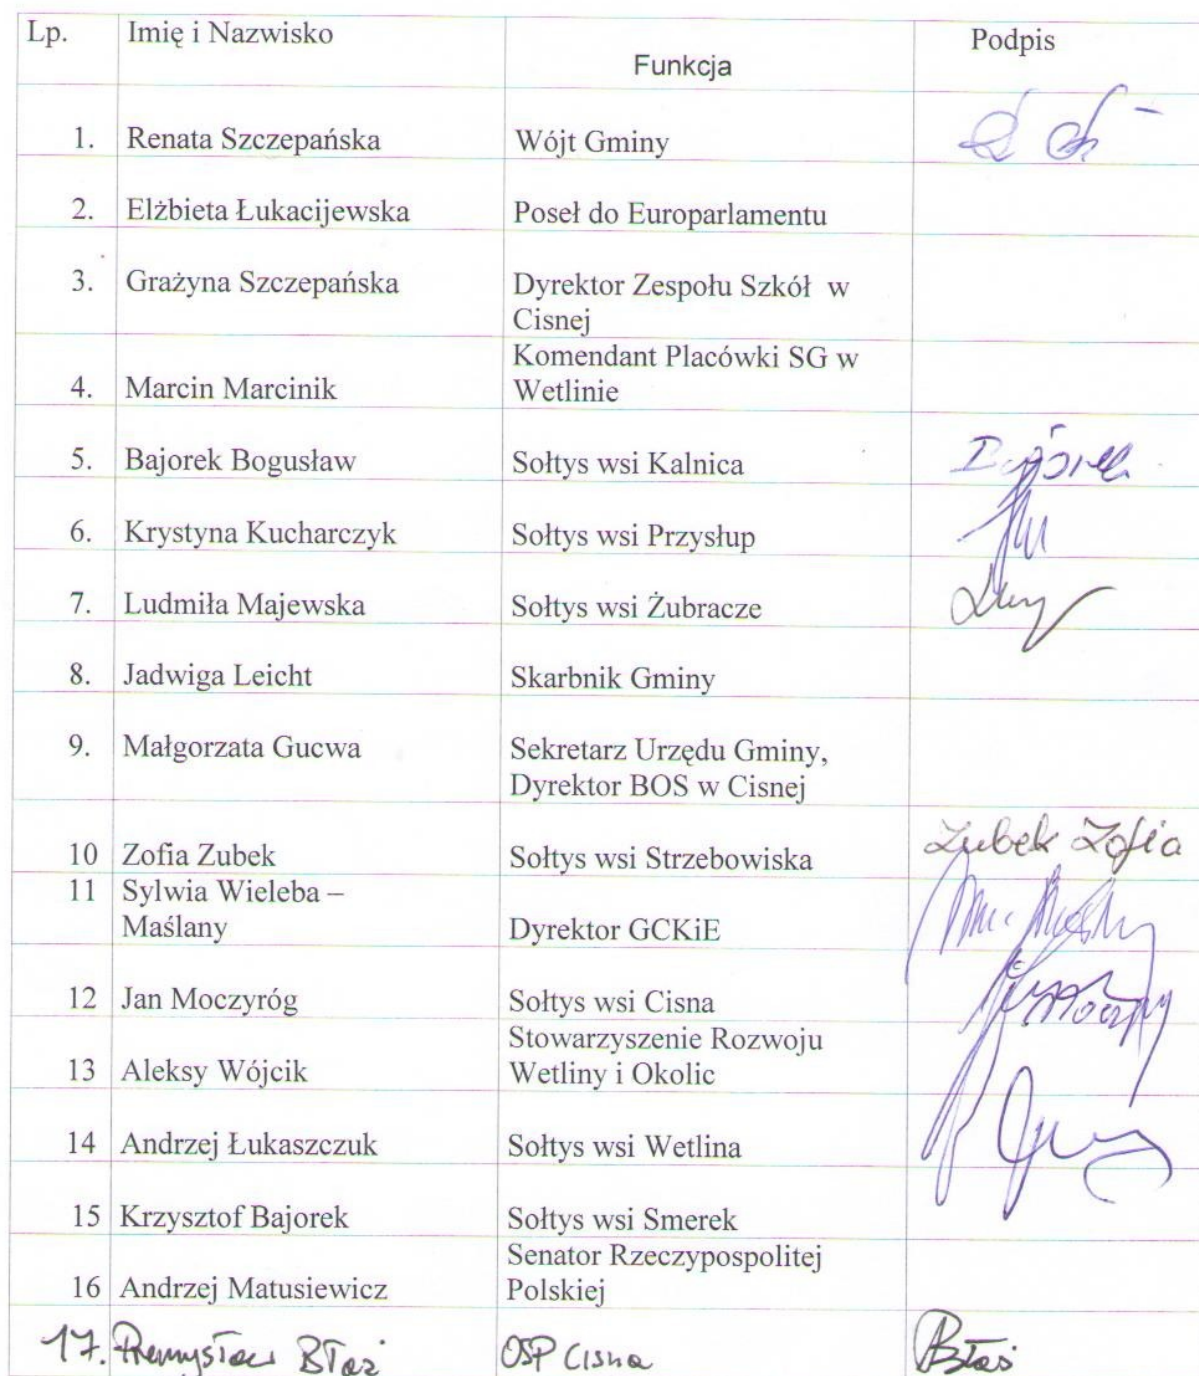 Lp. Imię i Nazwisko Funkcja Podpis
1. Renata Szczepańska Wójt Gminy
2. Elżbieta Łukacijewska Poseł do Europarlamentu
3. Grażyna Szczepańska Dyrektor Zespołu Szkół w
Cisnej
Komendant Placówki SG w
4. Marcin Marcinik Wetlinie
5. Bajorek Bogusław Sołtys wsi Kalnica
6. Krystyna Kucharczyk Sołtys wsi Przysłup
7. Ludmiła Majewska Sołtys wsi Żubracze
8. Jadwiga Leicht Skarbnik Gminy
9. Małgorzata Gucwa Sekretarz Urzędu Gminy,
Dyrektor BOS w Cisnej
10 Zofia Zubek Sołtys wsi Strzebowiska Zubek Zofia
11 Sylwia Wieleba –
Maślany Dyrektor GCKiE
12 Jan Moczyróg Sołtys wsi Cisna
Stowarzyszenie Rozwoju
13 Aleksy Wójcik Wetliny i Okolic
14 Andrzej Łukaszczuk Sołtys wsi Wetlina
15 Krzysztof Bajorek Sołtys wsi Smerek
Senator Rzeczypospolitej
16 Andrzej Matusiewicz Polskiej
17. OSP Cisna